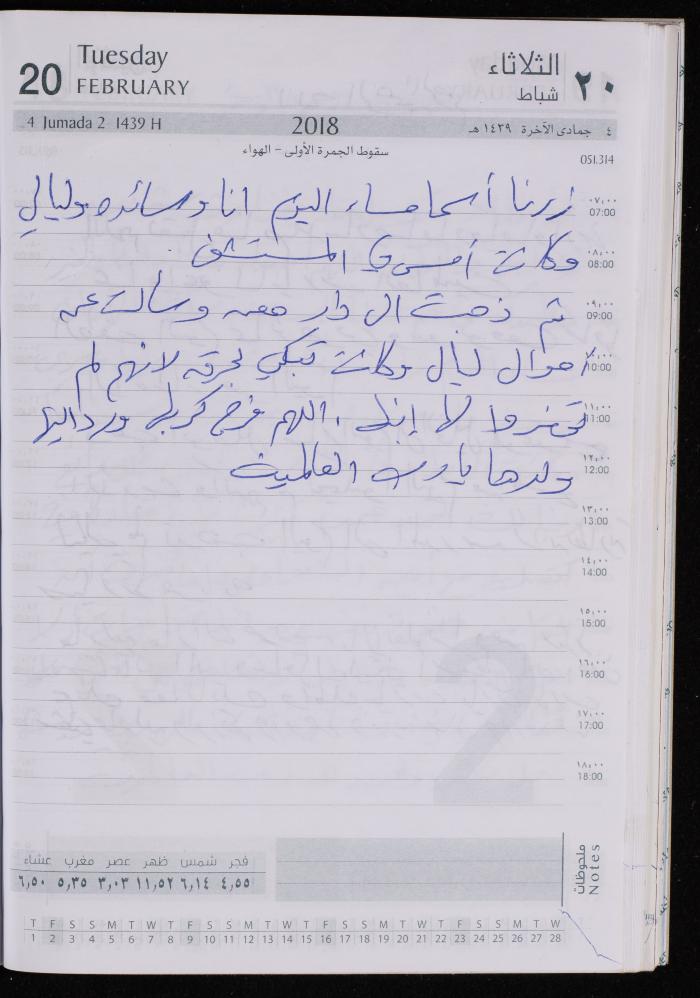 Tuesday
20 FEBRUARY
الثلاثاء
٢٠ شباط
4 Jumada 2 1439 H 2018 ٤ جمادى الآخرة ١٤٣٩ هـ
سقوط الجمرة الأولى - الهواء
051.314
زرنا أسما مساء اليوم انا وسائده وليالي
وكانت أمس في المستشفى
ثم ذهبت الى دار معه وسألت عن
احوال ليال وكانت تبكي بحرقه لانهم لم
يحضروا لها إبنها . اللهم فرج كربها ورد اليها
ولدها يا رب العالمين
٠٧،٠٠
07:00
٠٨،٠٠
08:00
٠٩،٠٠
09:00
١٠،٠٠
10:00
١١،٠٠
11:00
١٢،٠٠
12:00
١٣،٠٠
13:00
١٤،٠٠
14:00
١٥،٠٠
15:00
١٦،٠٠
16:00
١٧،٠٠
17:00
١٨،٠٠
18:00
ملحوظات
Notes
فجر شمس ظهر عصر مغرب عشاء
٤,٥٥ ٦,١٤ ١١,٥٢ ٣,٠٣ ٥,٣٥ ٦,٥٠
T F S S M T W T F S S M T W T F S S M T W T F S S M T W
1 2 3 4 5 6 7 8 9 10 11 12 13 14 15 16 17 18 19 20 21 22 23 24 25 26 27 28